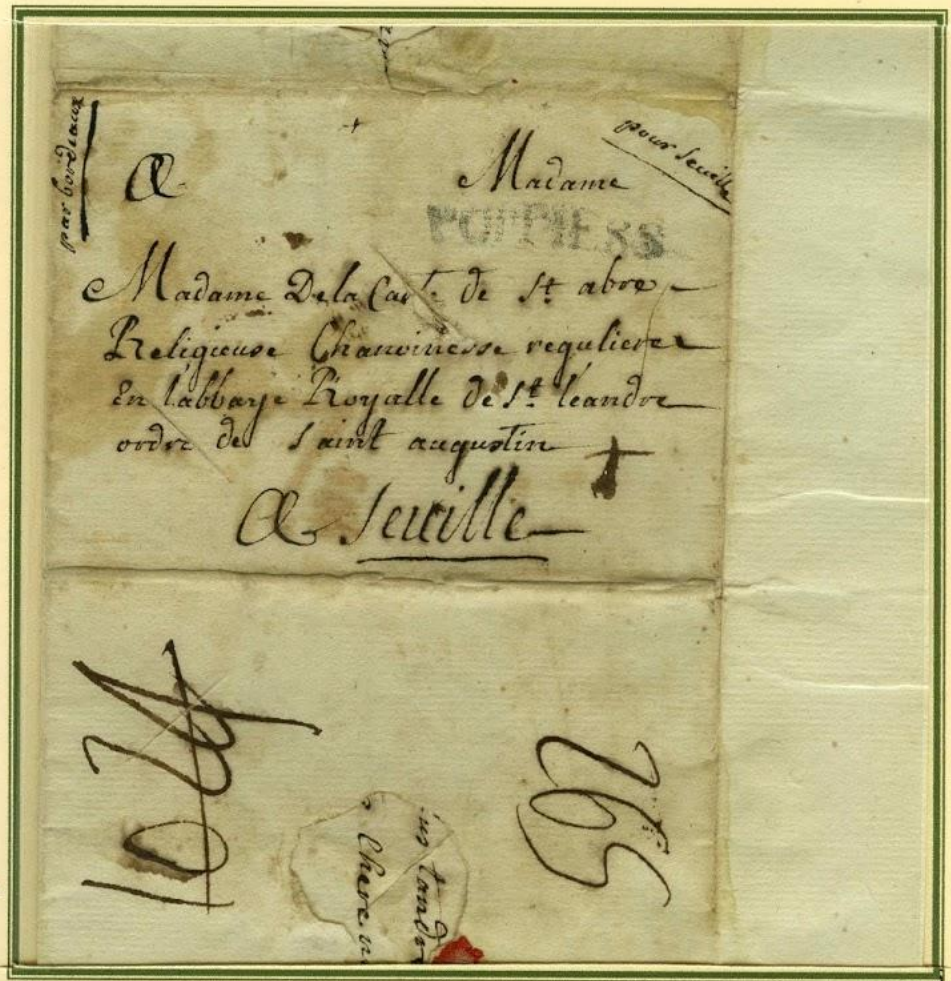 par bordeaux
pour Seville
A Madame
Madame De la Carte de St. abre
Religieuse Chanoinesse reguliere
En l'abbaye Royalle de St. leandre
ordre de Saint augustin
A Seville
tandr
Chere